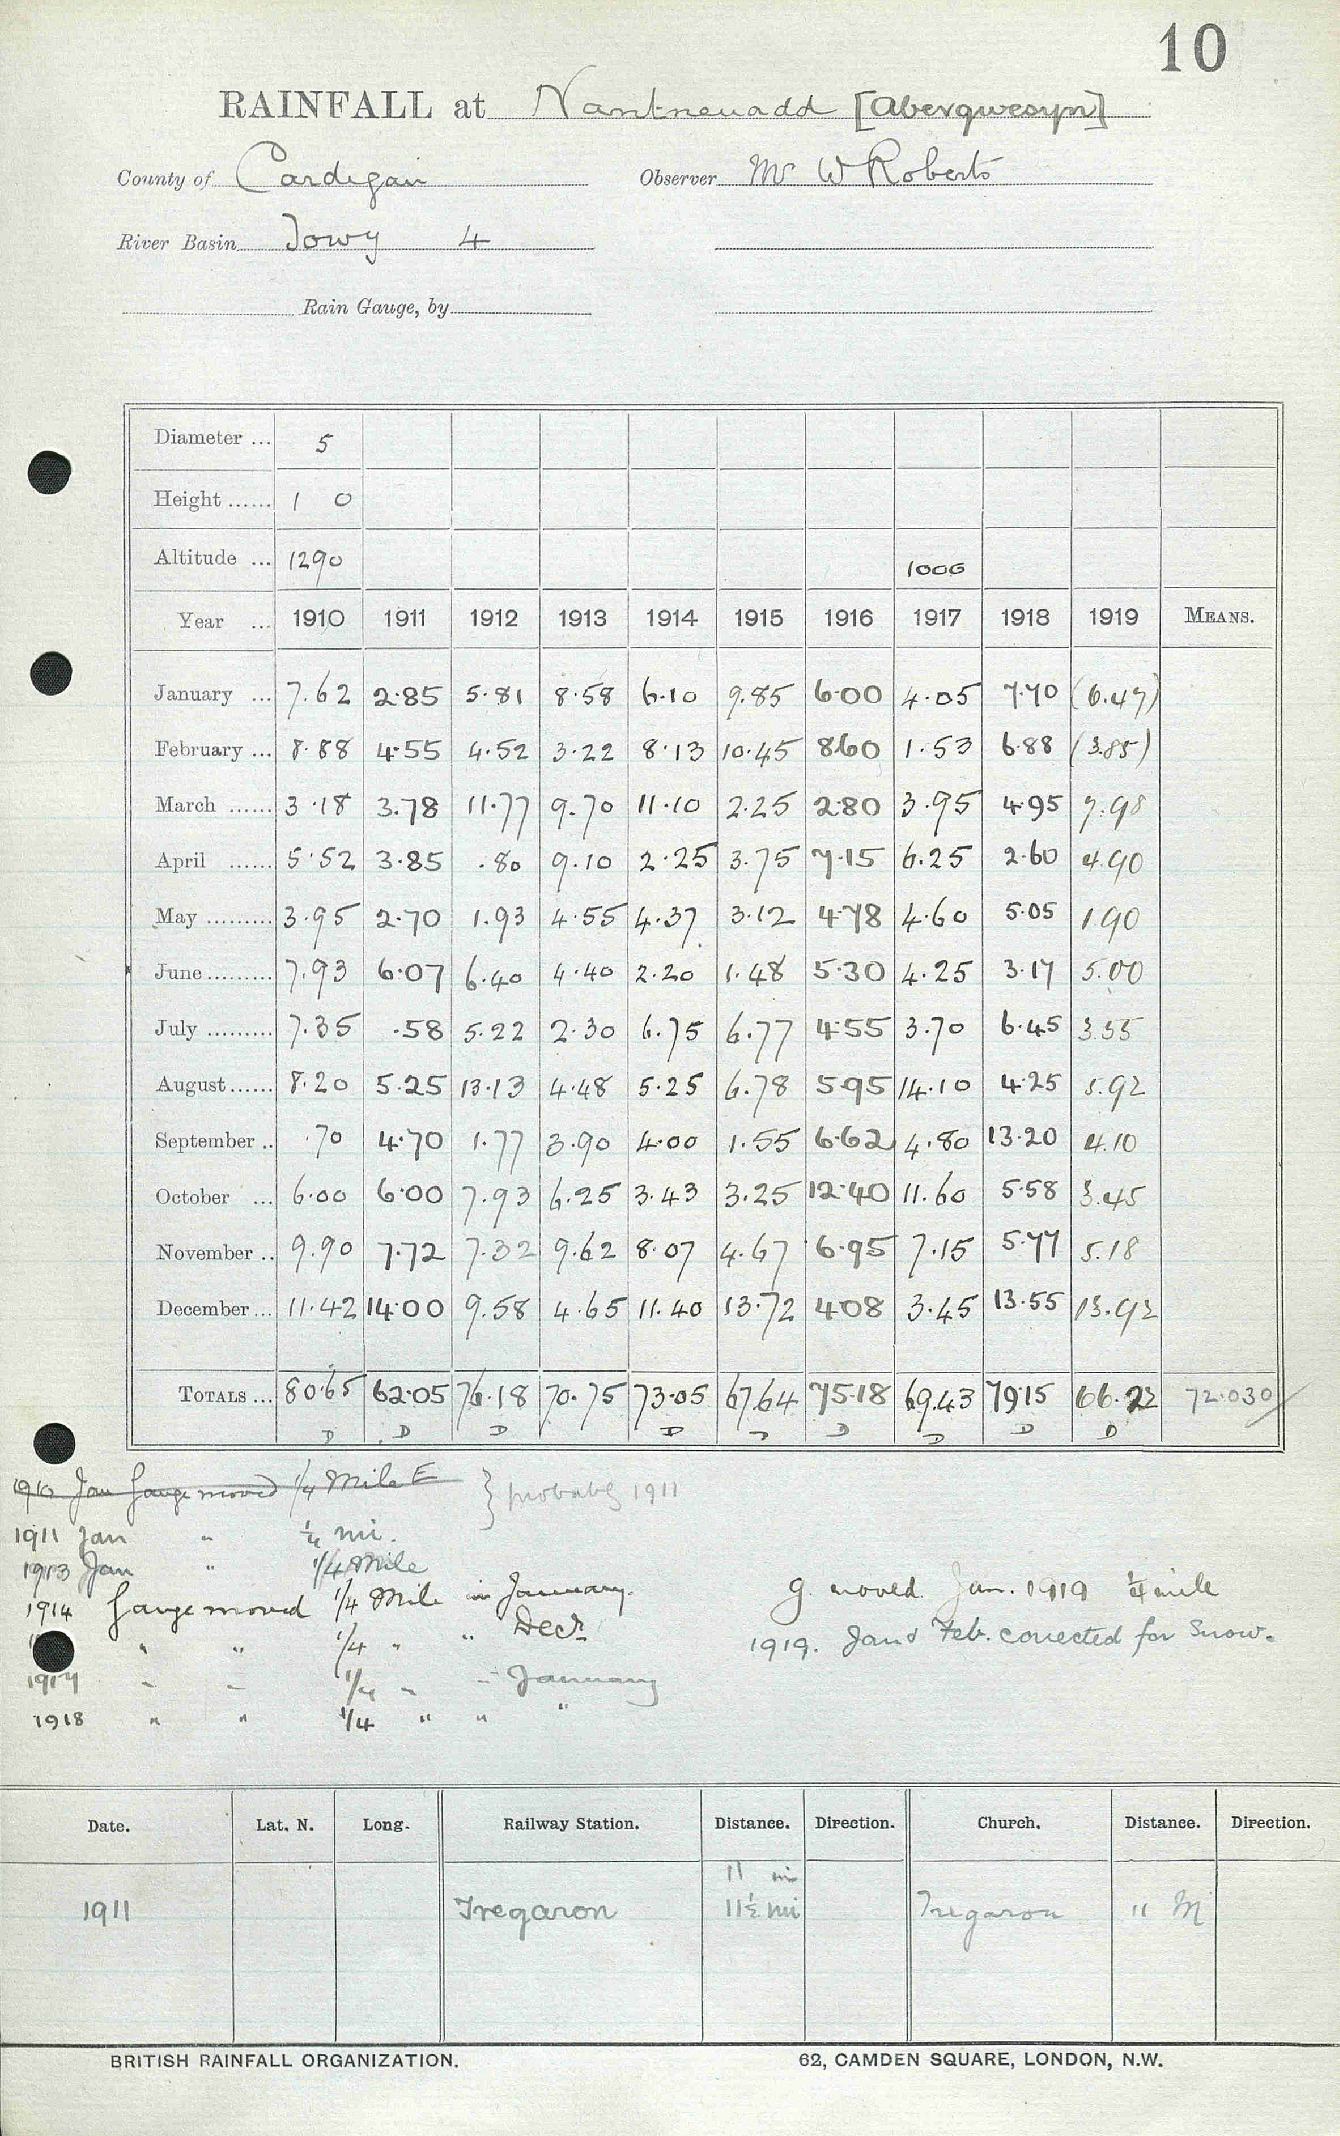 10
RAINFALL at Nantneuadd [Abergwesyn]
County of Cardigan Observer Mr W Roberts
River Basin Towy 4
Rain Gauge, by
Diameter ... 5
Height ...... 1 0
Altitude ... 1290 1006
Year ... 1910 1911 1912 1913 1914 1915 1916 1917 1918 1919 MEANS.
January ... 7.62 2.85 5.81 8.58 6.10 9.85 6.00 4.05 7.70 (6.47)
February ... 8.88 4.55 4.52 3.22 8.13 10.45 8.60 1.53 6.88 (3.85)
March ...... 3.18 3.78 11.77 9.70 11.10 2.25 2.80 3.95 4.95 7.98
April ...... 5.52 3.85 .80 9.10 2.25 3.75 7.15 6.25 2.60 4.90
May ......... 3.95 2.70 1.93 4.55 4.37 3.12 4.78 4.60 5.05 1.90
June ......... 7.93 6.07 6.40 4.40 2.20 1.48 5.30 4.25 3.17 5.00
July ......... 7.35 .58 5.22 2.30 6.75 6.77 4.55 3.70 6.45 3.55
August ...... 8.20 5.25 13.13 4.48 5.25 6.78 5.95 14.10 4.25 5.92
September .. .70 4.70 1.77 3.90 4.00 1.55 6.62 4.80 13.20 4.10
October ... 6.00 6.00 7.93 6.25 3.43 3.25 12.40 11.60 5.58 3.45
November .. 9.90 7.72 7.32 9.62 8.07 4.67 6.95 7.15 5.77 5.18
December ... 11.42 14.00 9.58 4.65 11.40 13.72 4.08 3.45 13.55 13.92
TOTALS ... 80.65 62.05 76.18 70.75 73.05 67.64 75.18 69.43 79.15 66.22 72.030
D D D D D D D D D
1910 Jan Gauge moved 1/4 Mile E } probably 1911
1911 Jan " 1/4 mi.
1913 Jan " 1/4 Mile
1914 Gauge moved 1/4 Mile in January.
" " 1/4 " " Decr
1917 " " 1/4 " " January
1918 " " 1/4 " " "
g. moved Jan. 1919 1/4 mile
1919. Jan & Feb. corrected for Snow.
Date. Lat. N. Long. Railway Station. Distance. Direction. Church. Distance. Direction.
11 mi
1911 Tregaron 11½ mi Tregaron 11 M
BRITISH RAINFALL ORGANIZATION. 62, CAMDEN SQUARE, LONDON, N.W.